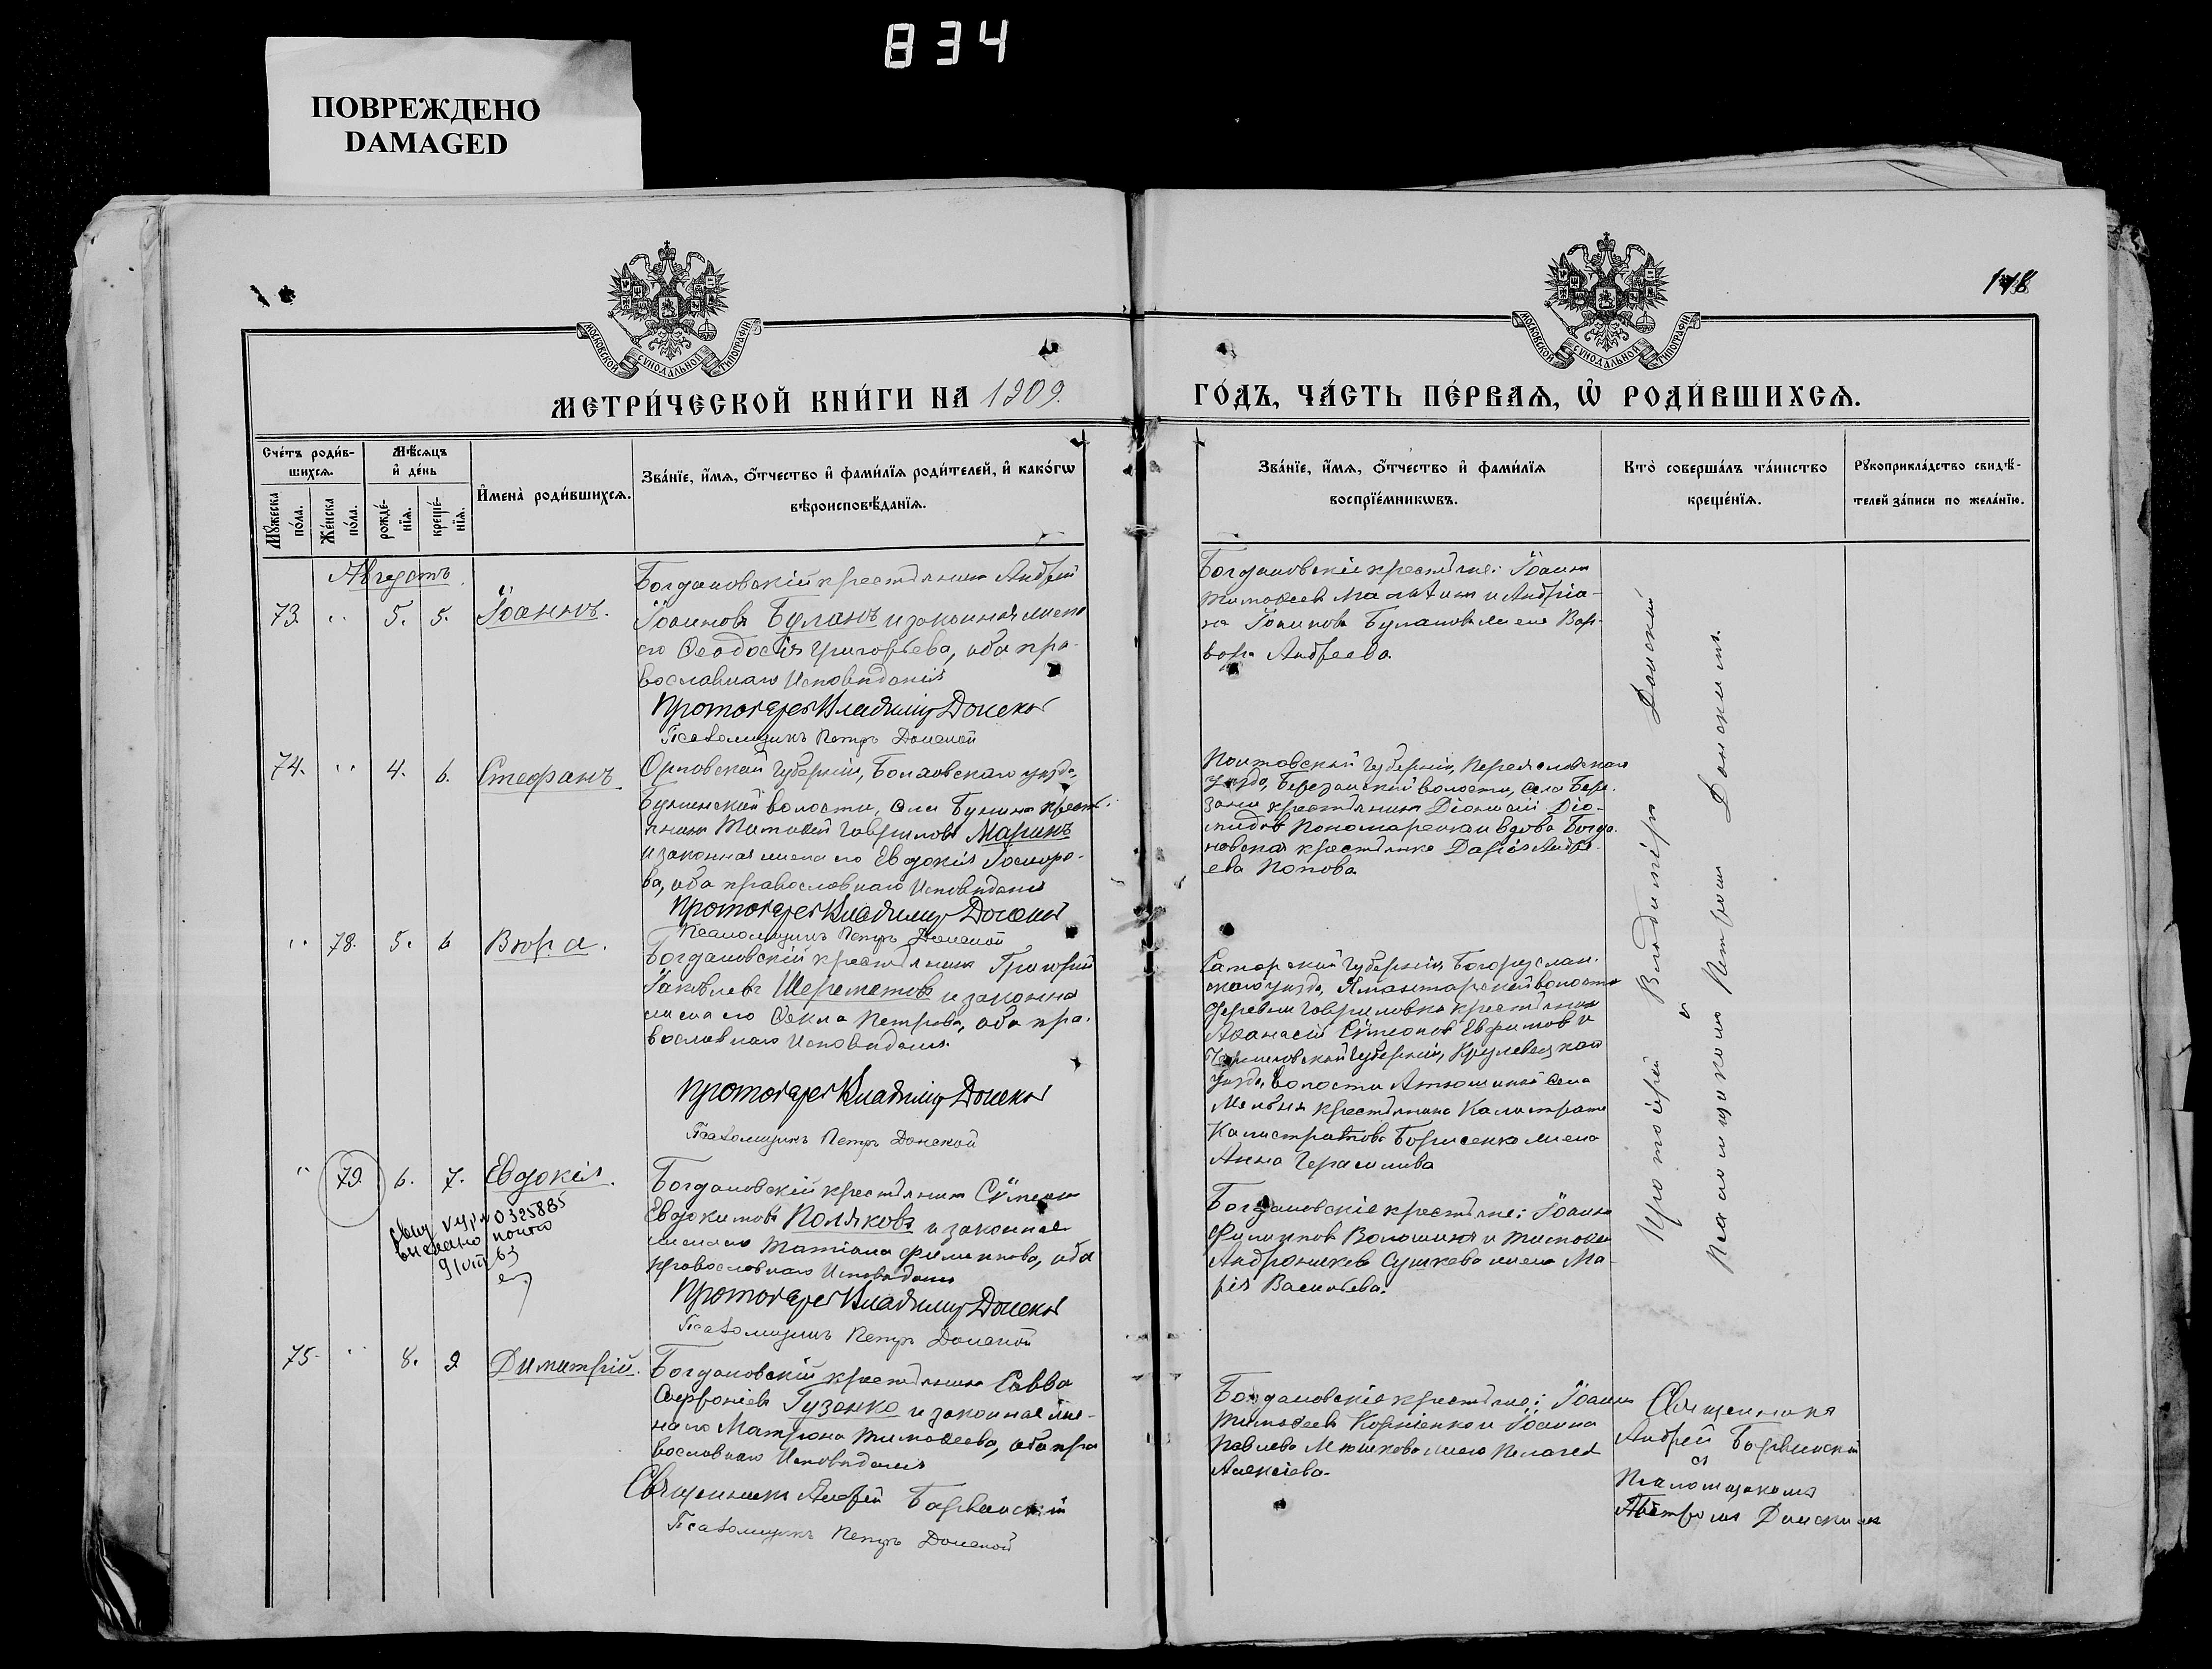 834
ПОВРЕЖДЕНО
DAMAGED
118
МОСКОВСКОЙ СѴНОДАЛЬНОЙ ТИПОГРАФІИ
МОСКОВСКОЙ СѴНОДАЛЬНОЙ ТИПОГРАФІИ
МЕТРИ́ЧЕСКОЙ КНИ́ГИ НА 1909.
ГО́ДЪ, ЧА́СТЬ ПЕ́РВАѦ, Ѡ҆ РОДИ́ВШИХСѦ.
Сче́тъ роди́вшихсѧ.
Мꙋ́жеска по́ла.
Же́нска по́ла.
Мѣ́сѧцъ и҆ де́нь
рожде́нїѧ.
креще́нїѧ.
И҆мена̀ роди́вшихсѧ.
Зва́нїе, и҆́мѧ, ѻ҆́тчество и҆ фами́лїѧ роди́телей, и҆ како́гѡ
вѣроисповѣ́данїѧ.
Зва́нїе, и҆́мѧ, ѻ҆́тчество и҆ фами́лїѧ
воспрїе́мникѡвъ.
Кто̀ соверша́лъ та́инство
креще́нїѧ.
Рꙋкоприкла́дство свидѣ́-
телей за́писи по жела́нїю.
Августъ
73. " 5. 5. Іоаннъ.
Богдановскій крестьянинъ Андрей
Іоанновъ Буланъ и законная жена
его Ѳеодосія Григорьева, оба пра-
вославнаго Исповѣданія
Протоіерей Владиміръ Донской
Псаломщикъ Петръ Донской
Богдановскіе крестьяне: Іоаннъ
Тимоѳеевъ и Андріа-
на Іоаннова Буланова жена Вар-
вара Андреева.
74. " 4. 6. Стефанъ
Орловской Губерніи, Болховскаго уѣзда,
волости, села крестья-
нинъ Тимоѳей Гавриловъ Маринъ
и законная жена его Евдокія
ва, оба православнаго Исповѣданія
Протоіерей Владиміръ Донской
Псаломщикъ Петръ Донской
Полтавской Губерніи, Переяславскаго
уѣзда, Березанской волости, села Бере-
зани крестьянинъ Діонисій Діо-
мидовъ Пономаренко и вдова Богда-
новская крестьянка Дарія Андре-
ева Попова
" 78. 5. 6 Вѣра.
Богдановскій крестьянинъ Григорій
Іаковлевъ Шереметовъ и законная
жена его Ѳекла Петрова, оба пра-
вославнаго Исповѣданія.
Протоіерей Владиміръ Донской
Псаломщикъ Петръ Донской
Самарской Губерніи Бугуруслан-
скаго уѣзда, волости
деревни Гавриловки крестьянинъ
Аѳанасій Сѵмеоновъ Ефимовъ и
Черниговской Губерніи, Кролевецкаго
уѣзда, волости села
крестьянина Калистрата
Калистратова Борисенко жена
Анна Герасимова
" 79. 6. 7. Евдокія.
0325885
9/VIII 63
Богдановскій крестьянинъ Сѵмеонъ
Евдокимовъ Поляковъ и законная
жена его Татіана Филиппова, оба
православнаго Исповѣданія
Протоіерей Владиміръ Донской
Псаломщикъ Петръ Донской
Богдановскіе крестьяне: Іоаннъ
Филипповъ Волошинъ и Тимоѳея
Андроникова Сушкова жена Ма-
рія Васильева.
75 " 8. 9 Димитрій.
Богдановскій крестьянинъ Савва
Софроніевъ Гузенко и законная же-
на его Матрона Тимоѳеева, оба пра
вославнаго Исповѣданія
Священникъ Андрей
Псаломщикъ Петръ Донской
Богдановскіе крестьяне: Іоаннъ
Тимоѳеевъ Корніенко и Іоанна
Павлова жена Пелагея
Алексіева.
Протоіерей Владиміръ Донской
съ
Псаломщикомъ Петромъ Донскимъ.
Священникъ
Андрей
съ
Псаломщикомъ
Петромъ Донскимъ